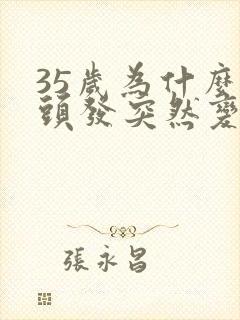 35歲為什麼
頭發突然變
張永昌